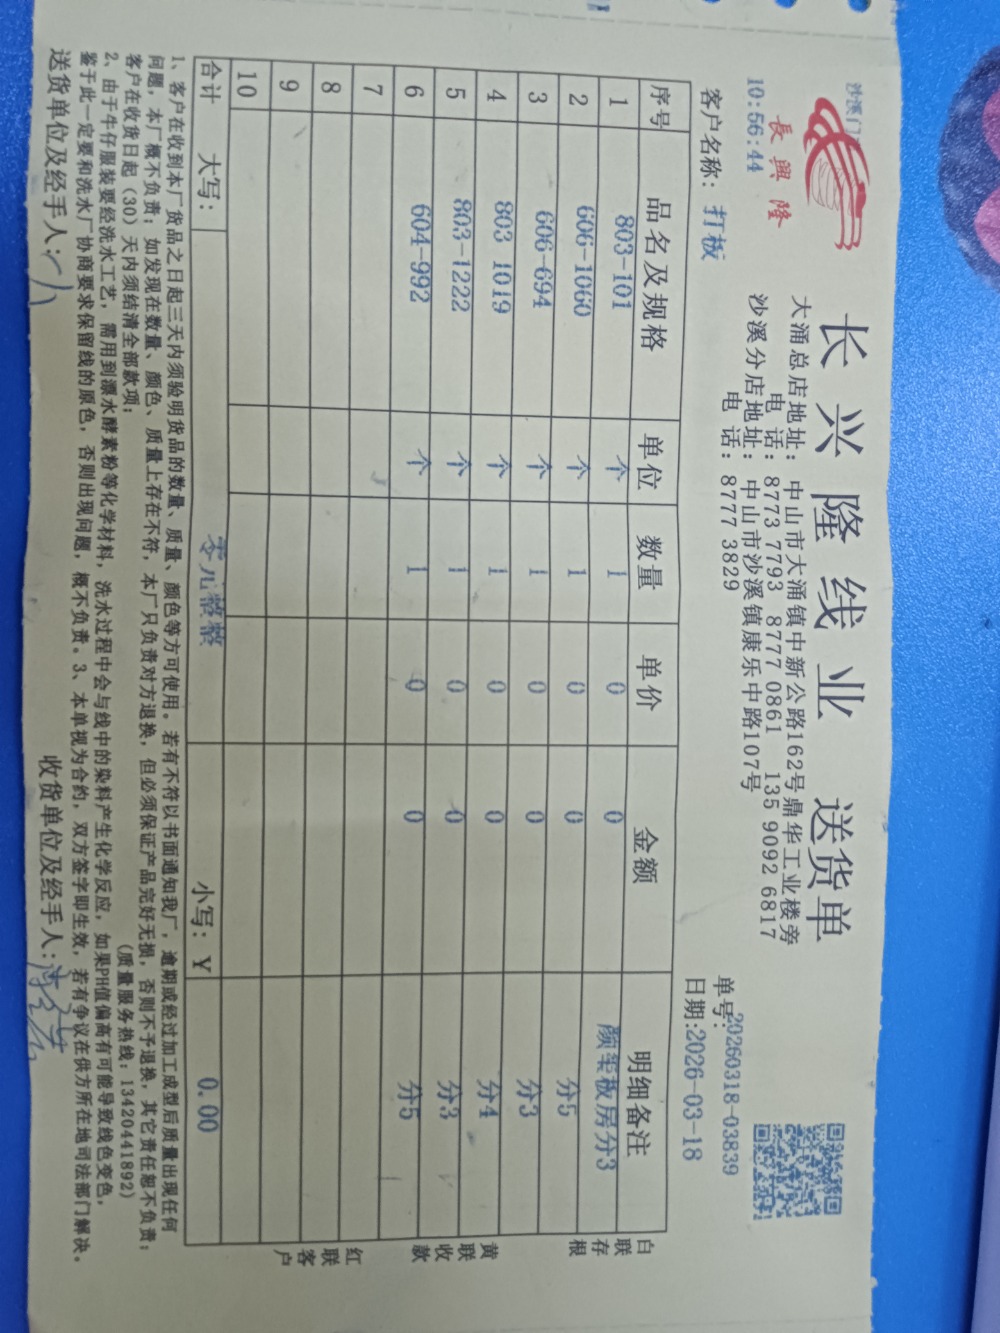 沙溪门
長興隆
10:56:44
长兴隆线业 送货单
大涌总店地址：中山市大涌镇中新公路162号鼎华工业楼旁
电 话：8773 7793 8777 0861 135 9092 6817
沙溪分店地址：中山市沙溪镇康乐中路107号
电 话：8777 3829
单号:20260318-03839
客户名称：打板
日期:2026-03-18
序号 品名及规格 单位 数量 单价 金额 明细备注
1 803-101 个 1 0 0 颜 板房分3
2 606-1060 个 1 0 0 分5
3 606-694 个 1 0 0 分3
4 803 1019 个 1 0 0 分4
5 803-1222 个 1 0 0 分3
6 604-992 个 1 0 0 分5
7
8
9
10
合计 大写： 零元整整 小写：￥ 0.00
白联存根
黄联收款
红联客户
1、客户在收到本厂货品之日起三天内须验明货品的数量、质量、颜色等方可使用。若有不符以书面通知我厂，逾期或经过加工成型后质量出现任何
问题，本厂概不负责；如发现在数量、颜色、质量上存在不符，本厂只负责对方退换，但必须保证产品完好无损，否则不予退换，其它责任恕不负责；
客户在收货日起（30）天内须结清全部款项； （质量服务热线：13420441892）
2、由于牛仔服装要经洗水工艺，需用到漂水酵素粉等化学材料，洗水过程中会与线中的染料产生化学反应，如果PH值偏高有可能导致线色变色，
鉴于此一定要和洗水厂协商要求保留线的原色，否则出现问题，概不负责。3、本单视为合约，双方签字即生效，若有争议在供方所在地司法部门解决。
送货单位及经手人： 收货单位及经手人：